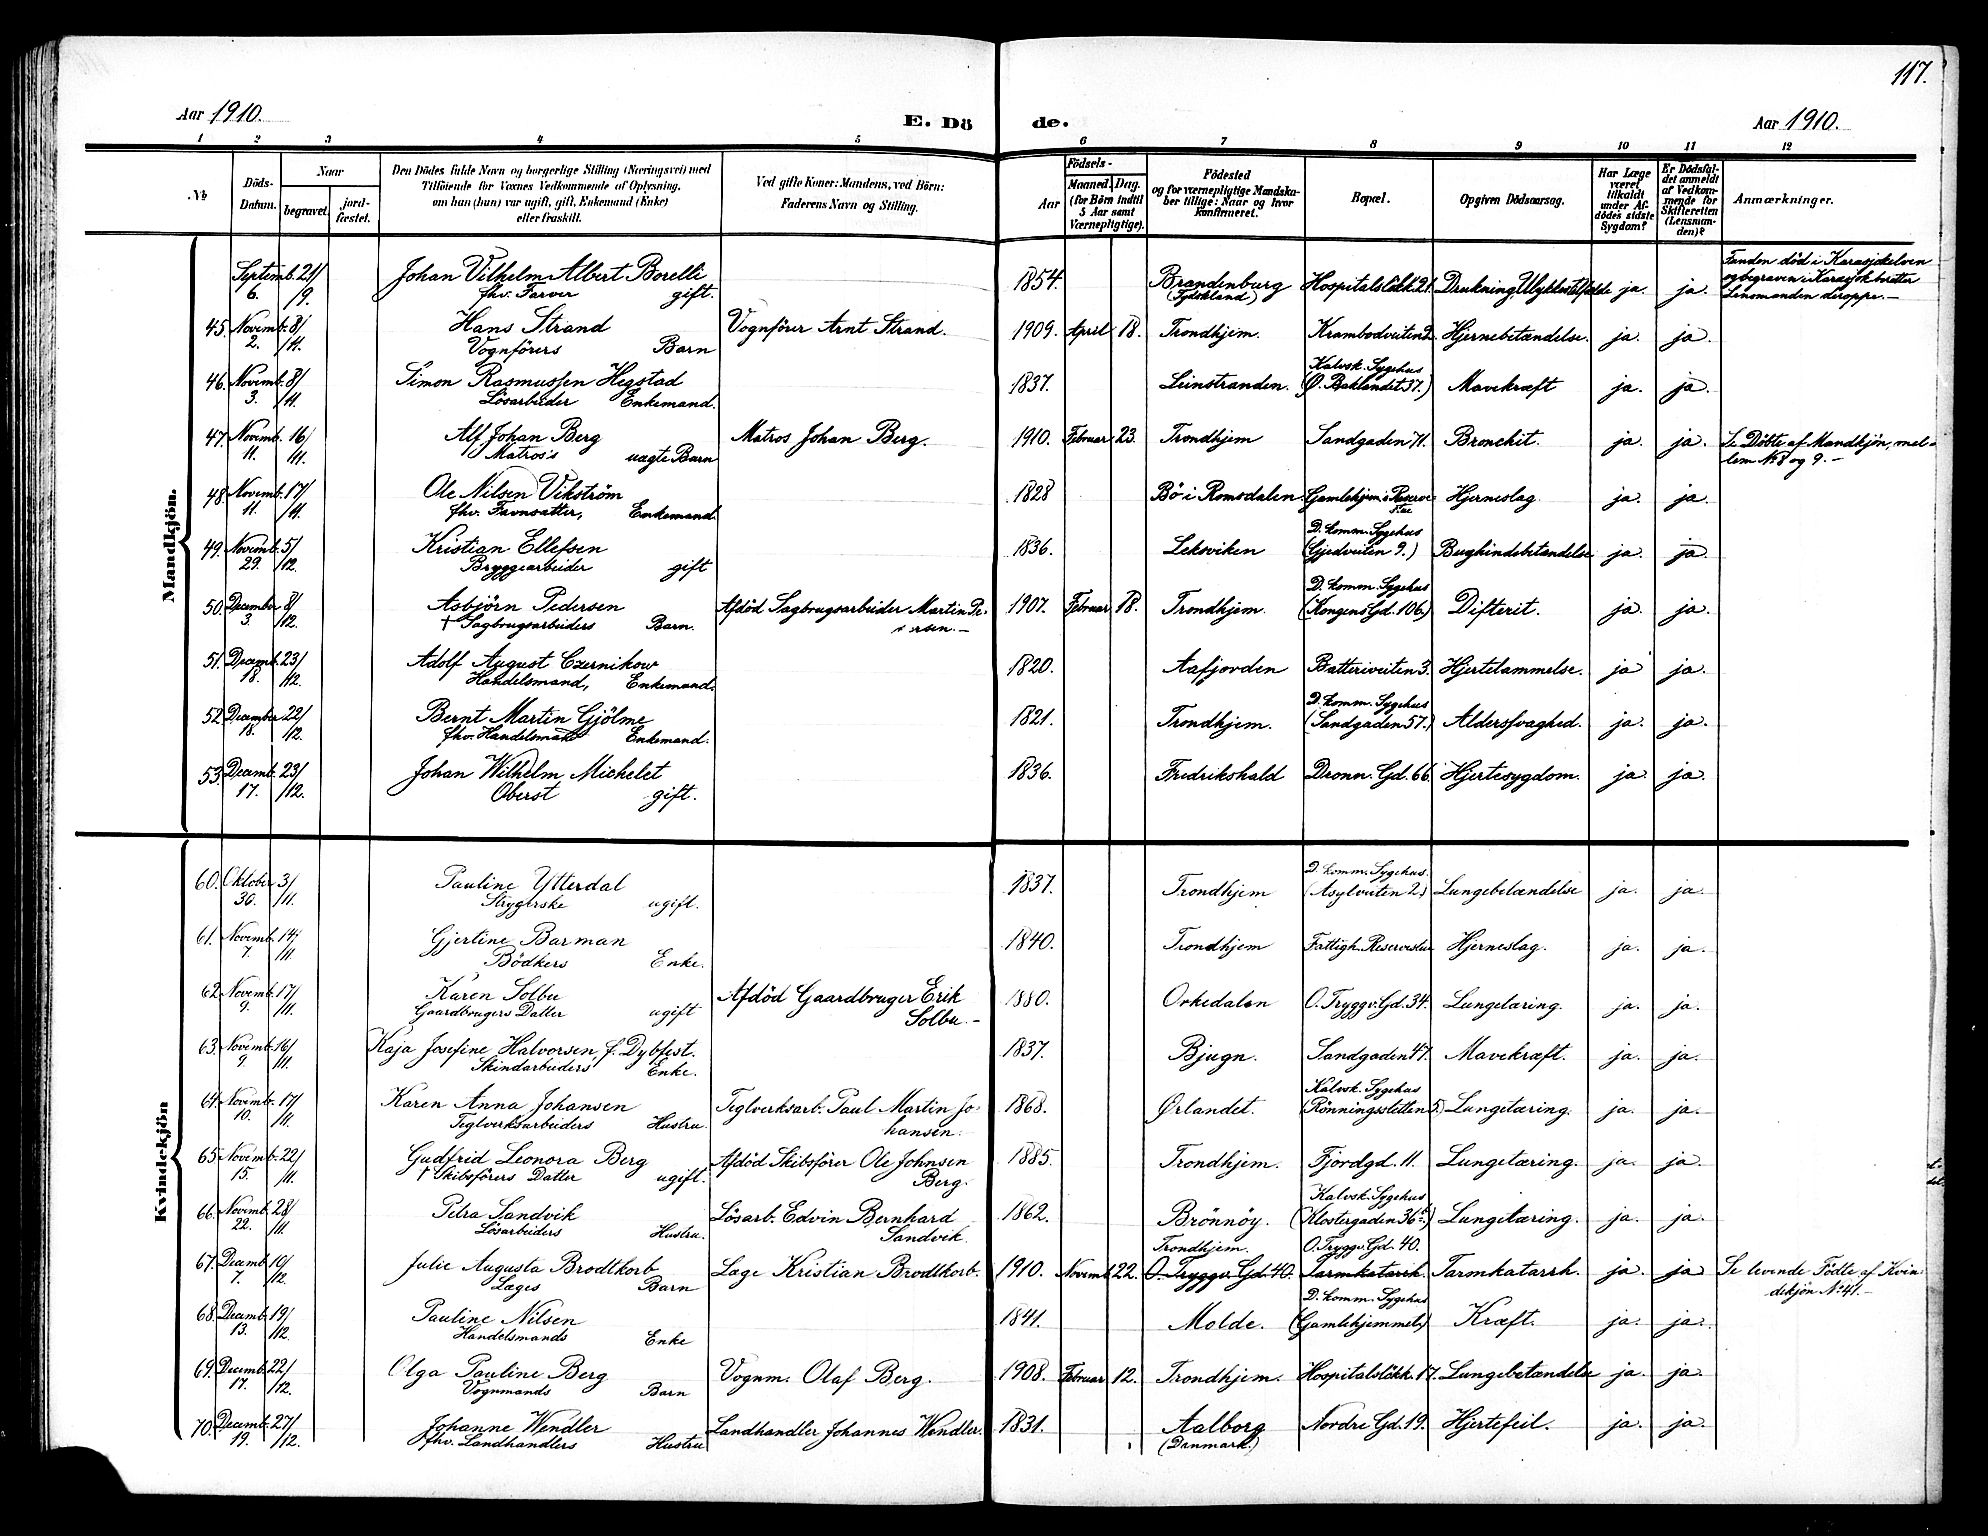 117.
Aar 1910. E. Dö de. Aar 1910.
1 2 3 4 5 6 7 8 9 10 11 12
No. Döds-Datum. Naar begravet. jord-fæstet. Den Dödes fulde Navn og borgerlige Stilling (Næringsvei) med Tilföiende for Voxnes Vedkommende af Oplysning, om han (hun) var ugift, gift, Enkemand (Enke) eller fraskilt. Ved gifte Koner: Mandens, ved Börn: Faderens Navn og Stilling. Födsels- Aar Maaned. Dag. (for Börn indtil 5 Aar samt Værnepligtige). Födested og for værnepligtige Mandska-ber tillige: Naar og hvor konfirmeret. Bopæl. Opgiven Dödsaarsag. Har Læge været tilkaldt under Af-dödes sidste Sygdom? Er Dödsfal-det anmeldt af Vedkom-mende for Skifteretten (Lensman-den)? Anmærkninger.
Mandkjön.
Septemb. 6. 21/9. Johan Vilhelm Albert Borelli fhv. Farver gift. 1854. Brandenburg (Tydskland) Hospitalslökk. 21. Drukning, Ulykkestilfælde ja. ja. Funden död i Karasjokelven og begraven i Karasjok
Lensmanden deroppe.—
45. Novemb. 2. 8/11. Hans Strand Vognförers Barn Vognförer Arnt Strand. 1909. April 18. Trondhjem. Krambodveiten 2. Hjernebetændelse. ja. ja.
46. Novemb. 3. 8/11. Simon Rasmussen Hegstad Lösarbeider Enkemand. 1837. Leinstranden. Kalvsk. Sygehus (Ø. Baklandet 37.) Mavekræft ja. ja
47. Novemb. 11. 16/11. Alf Johan Berg Matros's uægte Barn Matros Johan Berg. 1910. Februar 23. Trondhjem Sandgaden 71. Bronchit. ja. ja. Se Döbte af Mandkjön, mel-
lem No 8 og 9.—
48. Novemb. 11. 17/11. Ole Nilsen Vikström fhv. Favnsætter, Enkemand. 1828 Bö i Romsdalen. Gamlehjem. Reserve Hjerneslag ja. ja.
49. Novemb. 29. 5/12. Kristian Ellefsen Bryggearbeider gift 1836. Leksviken D. komm. Sygehus (Gjedveiten 9.) Bughindebetændelse ja. ja.
50. December 3. 8/12. Asbjörn Pedersen † Sagbrugsarbeiders Barn. Afdöd Sagbrugsarbeider Martin Pe-
ersen.— 1907. Februar 18. Trondhjem. D. komm. Sygehus (Kongens Gd. 106.) Difterit. ja. ja.
51. Decemb. 18. 23/12. Adolf August Czernikow Handelsmand, Enkemand. 1820. Aafjorden Batteriveiten 3. Hjertelammelse. ja ja.
52. December 18. 22/12. Bernt Martin Gjölme fhv. Handelsmand Enkemand. 1821. Trondhjem. D. komm. Sygehus (Sandgaden 57.) Aldersvaghed. ja. ja.
53. Decemb. 17. 23/12. Johan Wilhelm Michelet Oberst gift. 1836. Fredrikshald Dronn. Gd. 66. Hjertesygdom. ja. ja.
Kvindekjön
60. Oktober 30. 3/11. Pauline Ytterdal Strygerske ugift. 1837. Trondhjem D. komm. Sygehus. (Asylveiten 2.) Lungebetændelse ja. ja.
61. Novemb. 7. 14/11. Gjertine Barman Bödkers Enke. 1840. Trondhjem Fattigh. Hjerneslag. ja. ja.
62. Novemb. 9. 17/11. Karen Solbu Gaardbrugers Datter ugift Afdöd Gaardbruger Erik
Solbu.— 1880. Orkedalen O. Tryggv. Gd. 34. Lungetæring. ja. ja.
63. Novemb. 9. 16/11. Kaja Josefine Halvorsen, f. Dybfest. Skindarbeiders Enke. 1837. Bjugn. Sandgaden 47. Mavekræft. ja. ja.
64. Novemb. 10. 17/11. Karen Anna Johansen Teglverksarbeiders Hustru. Teglverksarb. Paul Martin Jo-
hansen. 1868. Ørlandet. Kalvsk. Sygehus (Rönningsstetten 5.) Lungetæring. ja. ja.
65. Novemb. 15. 22/11. Gudfrid Leonora Berg † Skibsförers Datter ugift. Afdöd Skibsförer Ole Johnsen
Berg. 1885. Trondhjem. Fjordgd. 11. Lungetæring. ja. ja.
66. Novemb. 22. 28/11. Petra Sandvik Lösarbeiders Hustru. Lösarb. Edvin Bernhard
Sandvik. 1862. Brönnöy. Kalvsk. Sygehus (Klostergaden 36b.) Lungetæring. ja. ja.
67. Decemb. 7. 10/12. Julie Augusta Brodtkorb Læges Barn Læge Kristian Brodtkorb. 1910. Novemb. 22. Trondhjem. O. Tryggv. Gd. 40. O. Tryggv. Gd. 40. Tarmkatarrh. Tarmkatarrh. ja. ja Se levende Födte af Kvin-
dekjön No 41.—
68. Decemb. 13. 19/12. Pauline Nilsen Handelsmands Enke 1841. Molde. D. komm. Sygehus (Gamlehjemmet.) Kræft. ja. ja.
69. Decemb. 17. 22/12. Olga Pauline Berg Vognmands Barn Vognm. Olaf Berg. 1908. Februar 12. Trondhjem. Hospitalslökk. 17. Lungebetændelse ja. ja.
70. Decemb. 19. 27/12. Johanne Wendler fhv. Landhandlers Hustru Landhandler Johannes Wendler. 1831. Aalborg (Danmark.) Nordre Gd. 19. Hjertefeil. ja. ja.